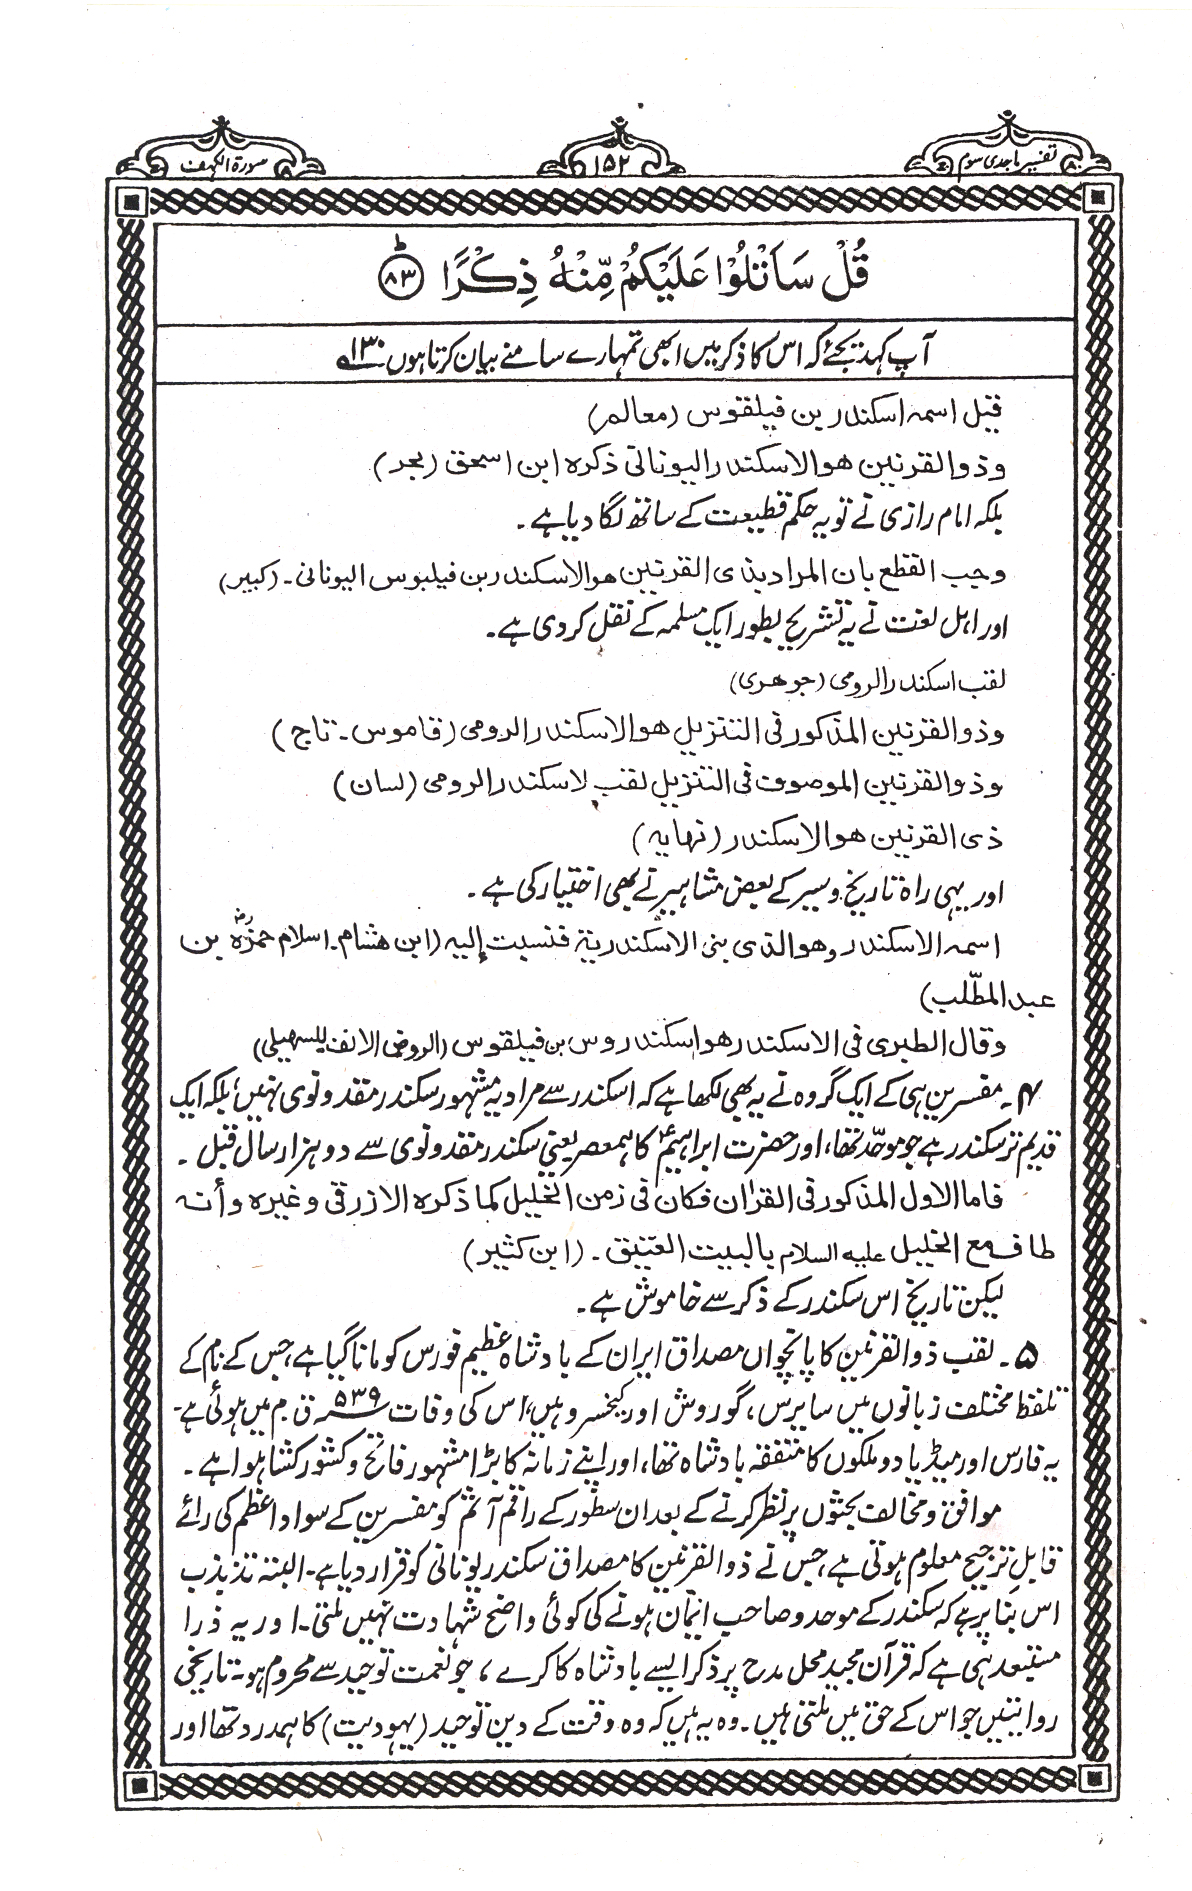 تفسیر ماجدی سوم
۱۵۲
سورة الکہف
قُلْ سَاَتْلُوْا عَلَیْکُمْ مِّنْهُ ذِکْرًا ؕ ۸۳
آپ کہہ دیجئے کہ اس کا ذکر میں ابھی تمہارے سامنے بیان کرتا ہوں ۱۳۰؎
قیل اسمه اسکندر بن فیلقوس (معالم)
وذوالقرنین هوالاسکندر الیونانی ذکره ابن اسحٰق (بحر)
بلکہ امام رازی نے تو یہ حکم قطیعت کے ساتھ لگا دیا ہے۔
وجب القطع بان المراد بذی القرنین هوالاسکندر بن فیلبوس الیونانی۔ (کبیر)
اور اہل لغت نے یہ تشریح بطور ایک مسلمہ کے نقل کر دی ہے۔
لقب اسکندر الرومی (جوهری)
وذوالقرنین المذکور فی التنزیل هوالاسکندر الرومی (قاموس۔ تاج)
وذوالقرنین الموصوف فی التنزیل لقب لاسکندر الرومی (لسان)
ذی القرنین هوالاسکندر (نهایه)
اور یہی راہ تاریخ وسیر کے بعض مشاہیر نے بھی اختیار کی ہے۔
اسمه الاسکندر وهوالذی بنی الاسکندریة فنسبت إلیه (ابن هشام۔ اسلام حمزه رض بن
عبد المطّلب)
وقال الطبری فی الاسکندر هو اسکندروس بن فیلقوس (الروض الانف للسهیلی)
۴۔ مفسرین ہی کے ایک گروہ نے یہ بھی لکھا ہے کہ اسکندر سے مراد یہ مشہور سکندر مقدونوی نہیں، بلکہ ایک
قدیم تر سکندر ہے جو موحّد تھا، اور حضرت ابراہیمؑ کا ہمعصر یعنی سکندر مقدونوی سے دو ہزار سال قبل۔
فاما الاول المذکور فی القرآن فکان فی زمن الخلیل کما ذکره الازرقی وغیره وأنه
طاف مع الخلیل علیه السلام بالبیت العتیق۔ (ابن کثیر)
لیکن تاریخ اس سکندر کے ذکر سے خاموش ہے۔
۵۔ لقب ذوالقرنین کا پانچواں مصداق ایران کے بادشاہ عظیم فورس کو مانا گیا ہے، جس کے نام کے
تلفظ مختلف زبانوں میں سایرس، گوروش اور کیخسرو ہیں، اس کی وفات ۵۳۹؁ ق م میں ہوئی ہے۔
یہ فارس اور میڈیا دو ملکوں کا متفقہ بادشاہ تھا، اور اپنے زمانہ کا بڑا مشہور فاتح و کشور کشا ہوا ہے۔
موافق و مخالف بحثوں پر نظر کرنے کے بعد ان سطور کے راقم آثم کو مفسرین کے سواد اعظم کی رائے
قابلِ ترجیح معلوم ہوتی ہے، جس نے ذوالقرنین کا مصداق سکندر یونانی کو قرار دیا ہے۔ البتہ تذبذب
اس بنا پر ہے کہ سکندر کے موحد و صاحب ایمان ہونے کی کوئی واضح شہادت نہیں ملتی۔ اور یہ ذرا
مستبعد ہی ہے کہ قرآن مجید محل مدح پر ذکر ایسے بادشاہ کا کرے، جو نعمت توحید سے محروم ہو۔ تاریخی
روایتیں جو اس کے حق میں ملتی ہیں۔ وہ یہ ہیں کہ وہ وقت کے دین توحید (یہودیت) کا ہمدرد تھا اور